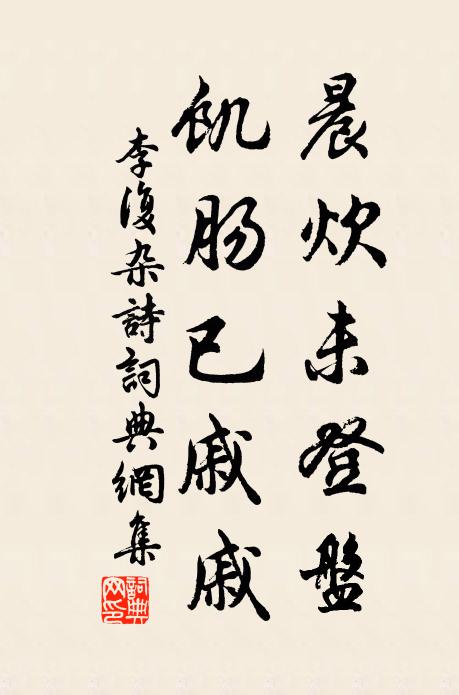 晨炊未登盤
飢肠已戚戚
李復杂詩詞典網集
詞典网印